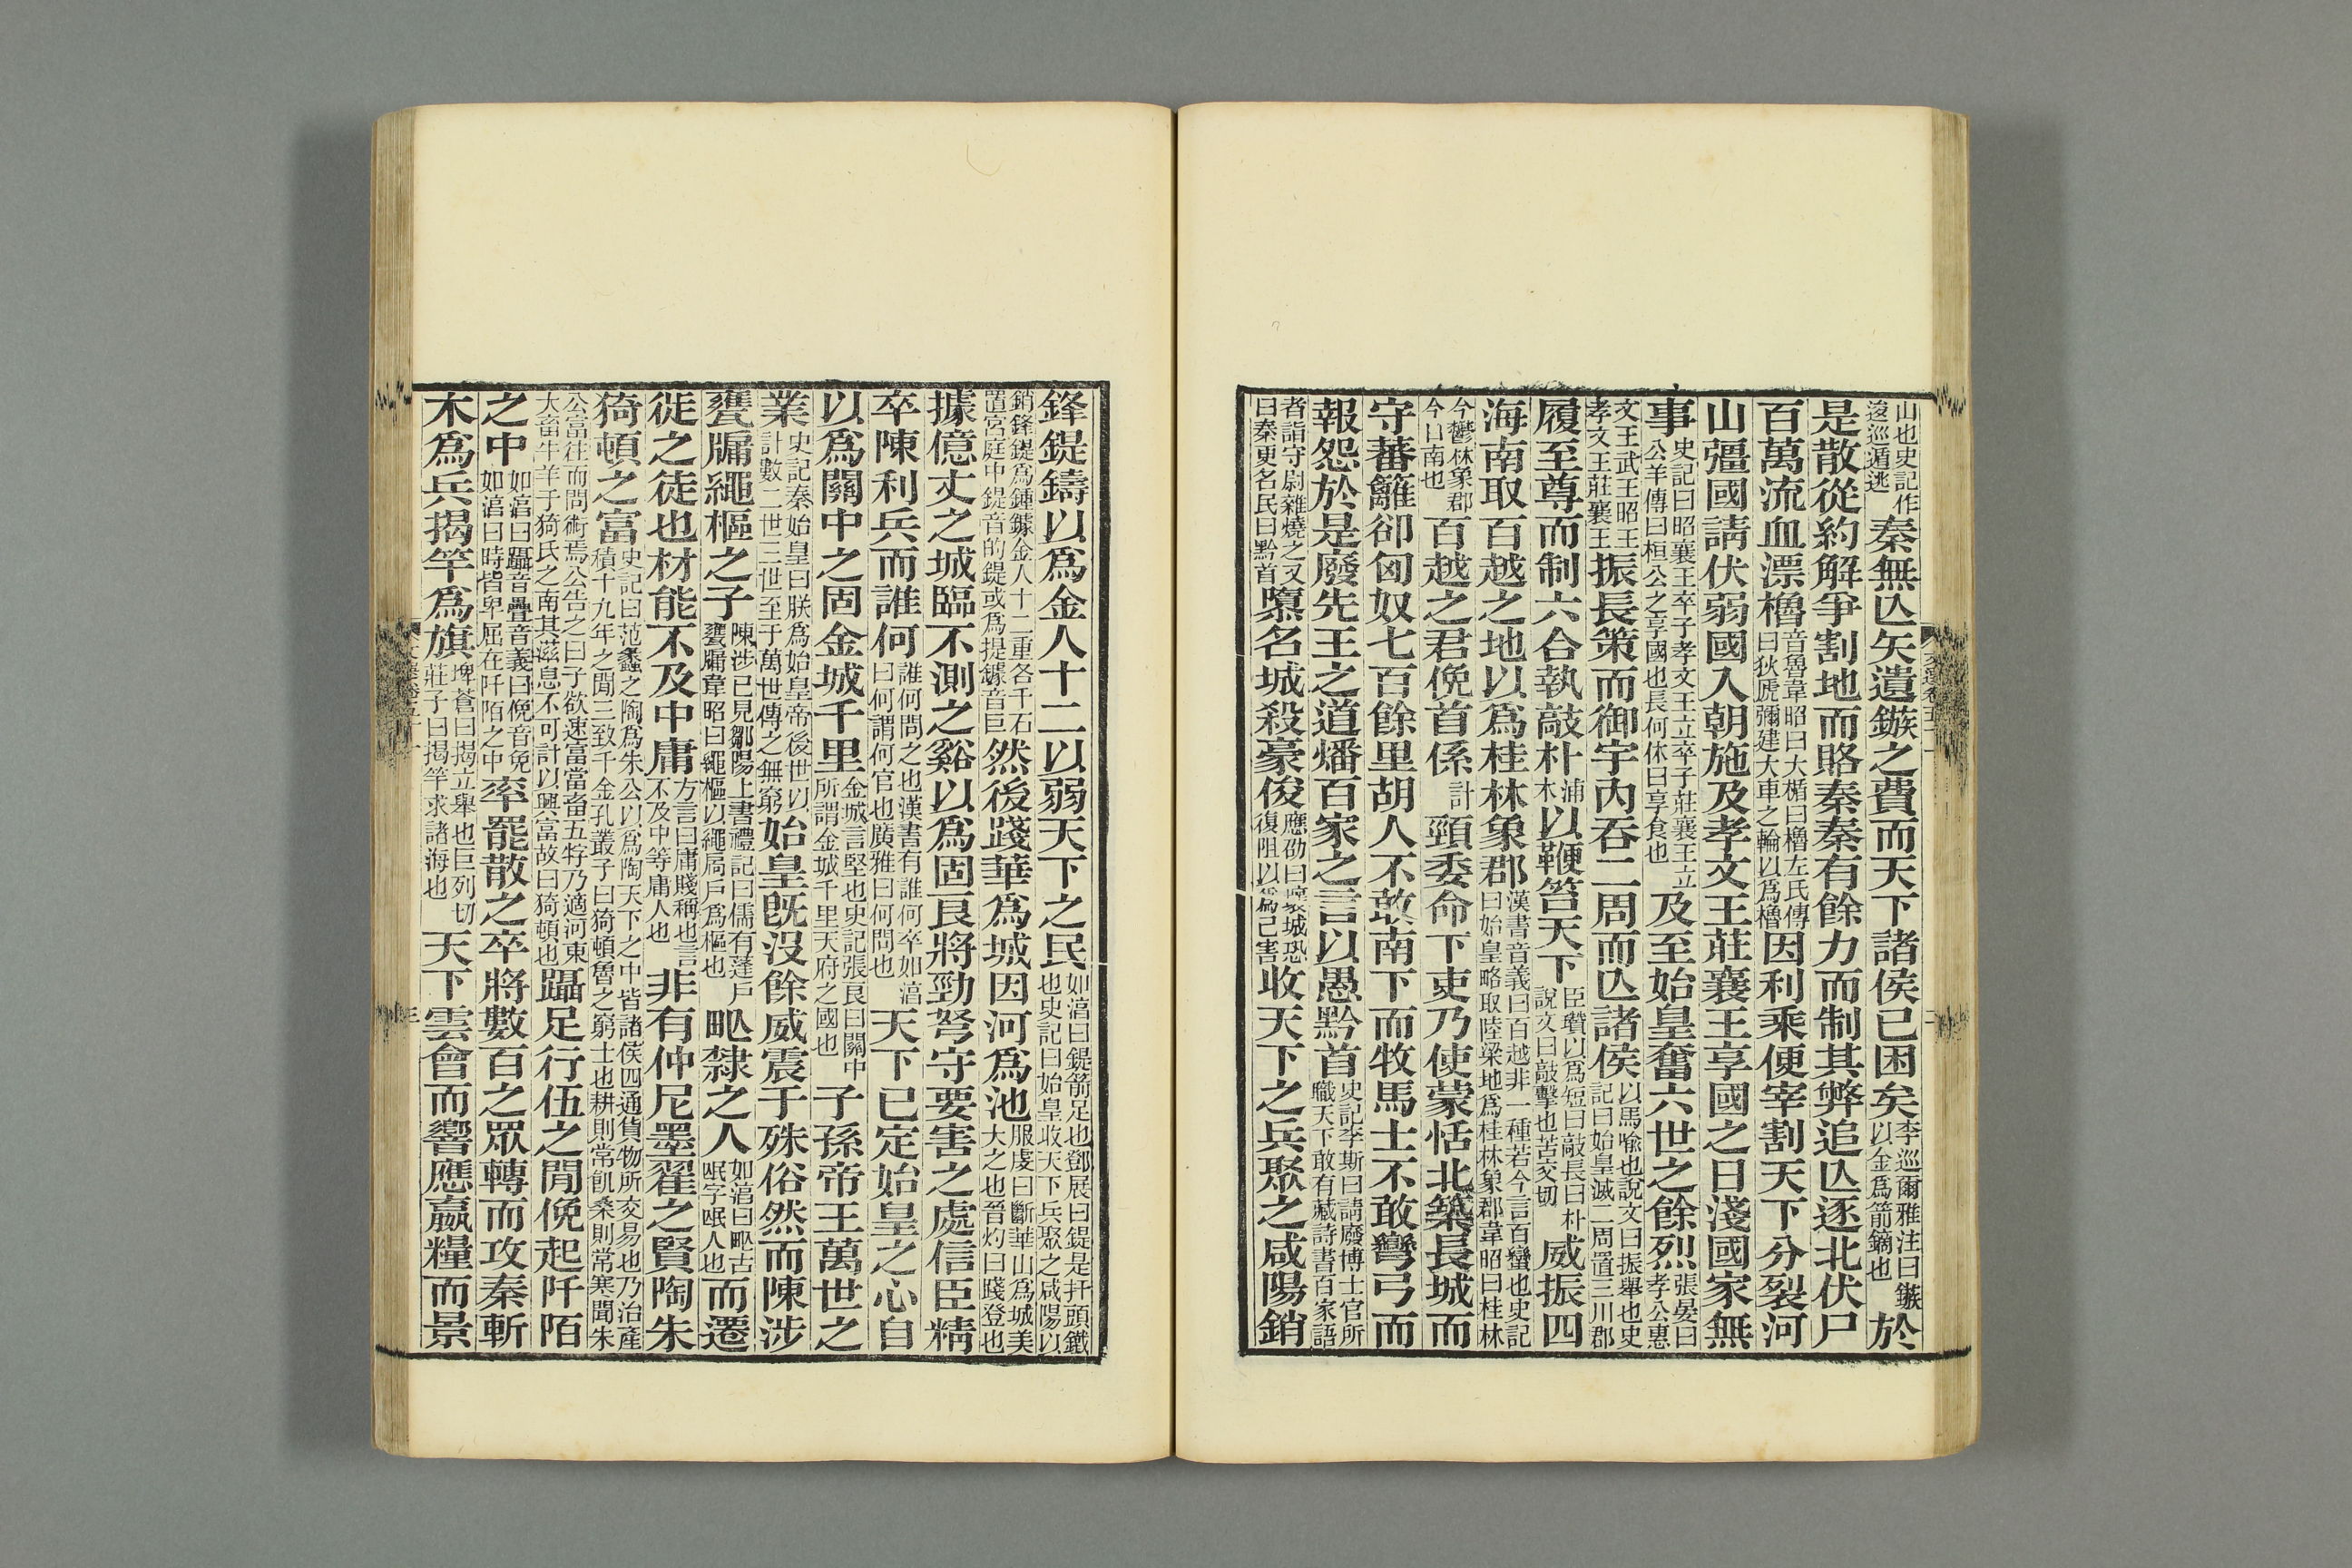 山也史記作逡巡遁逃秦無亾矢遺鏃之費而天下諸侯已困矣李巡爾雅注曰鏃以金為箭鏑也於
是散從約解爭割地而賂秦秦有餘力而制其弊追亾逐北伏尸
百萬流血漂櫓音魯韋昭曰大楯曰櫓左氏傳曰狄虒彌建大車之輪以為櫓因利乘便宰割天下分裂河
山彊國請伏弱國入朝施及孝文王莊襄王享國之日淺國家無
事史記曰昭襄王卒子孝文王立卒子莊襄王立公羊傳曰桓公之享國也長何休曰享食也及至始皇奮六世之餘烈張晏曰孝公惠
文王武王昭王孝文王莊襄王振長策而御宇內吞二周而亾諸侯以馬喻也說文曰振舉也史記曰始皇滅二周置三川郡
履至尊而制六合執敲朴浦木以鞭笞天下臣瓚以為短曰敲長曰朴說文曰敲擊也苦交切威振四
海南取百越之地以為桂林象郡漢書音義曰百越非一種若今言百蠻也史記曰始皇略取陸梁地為桂林象郡韋昭曰桂林
今鬱林象郡今日南也百越之君俛首係計頸委命下吏乃使蒙恬北築長城而
守蕃籬卻匈奴七百餘里胡人不敢南下而牧馬士不敢彎弓而
報怨於是廢先王之道燔百家之言以愚黔首史記李斯曰請廢博士官所職天下敢有藏詩書百家語
者詣守尉雜燒之又曰秦更名民曰黔首隳名城殺豪俊應劭曰壞城恐復阻以為己害收天下之兵聚之咸陽銷
鋒鍉鑄以爲金人十二以弱天下之民如湻曰鍉箭足也鄧展曰鍉是扞頭鐵也史記曰始皇收天下兵聚之咸陽以
銷鋒鍉爲鍾鐻金人十二重各千石置宮庭中鍉音的鍉或爲提鐻音巨然後踐華爲城因河爲池服虔曰斷華山爲城美大之也晉灼曰踐登也
據億丈之城臨不測之谿以爲固良將勁弩守要害之處信臣精
卒陳利兵而誰何誰何問之也漢書有誰何卒如湻曰何謂何官也廣雅曰何問也天下已定始皇之心自
以爲關中之固金城千里金城言堅也史記張良曰關中所謂金城千里天府之國也子孫帝王萬世之
業史記秦始皇曰朕爲始皇帝後世以計數二世三世至于萬世傳之無窮始皇旣沒餘威震于殊俗然而陳涉
甕牖繩樞之子陳涉已見鄒陽上書禮記曰儒有蓬戶甕牖韋昭曰繩樞以繩扃戶爲樞也甿隸之人如湻曰甿古氓字氓人也而遷
徙之徒也材能不及中庸方言曰庸賤稱也言不及中等庸人也非有仲尼墨翟之賢陶朱
猗頓之富史記曰范蠡之陶爲朱公以爲陶天下之中皆諸侯四通貨物所交易也乃治產積十九年之閒三致千金孔叢子曰猗頓魯之窮士也耕則常飢桑則常寒聞朱
公富往而問術焉公告之曰子欲速富當畜五牸乃適河東大畜牛羊于猗氏之南其滋息不可計以興富故曰猗頓也躡足行伍之閒俛起阡陌
之中如湻曰躡音疊音義曰俛音免如湻曰時皆卑屈在阡陌之中率罷散之卒將數百之眾轉而攻秦斬
木爲兵揭竿爲旗埤蒼曰揭立舉也巨列切莊子曰揭竿求諸海也天下雲會而響應贏糧而景